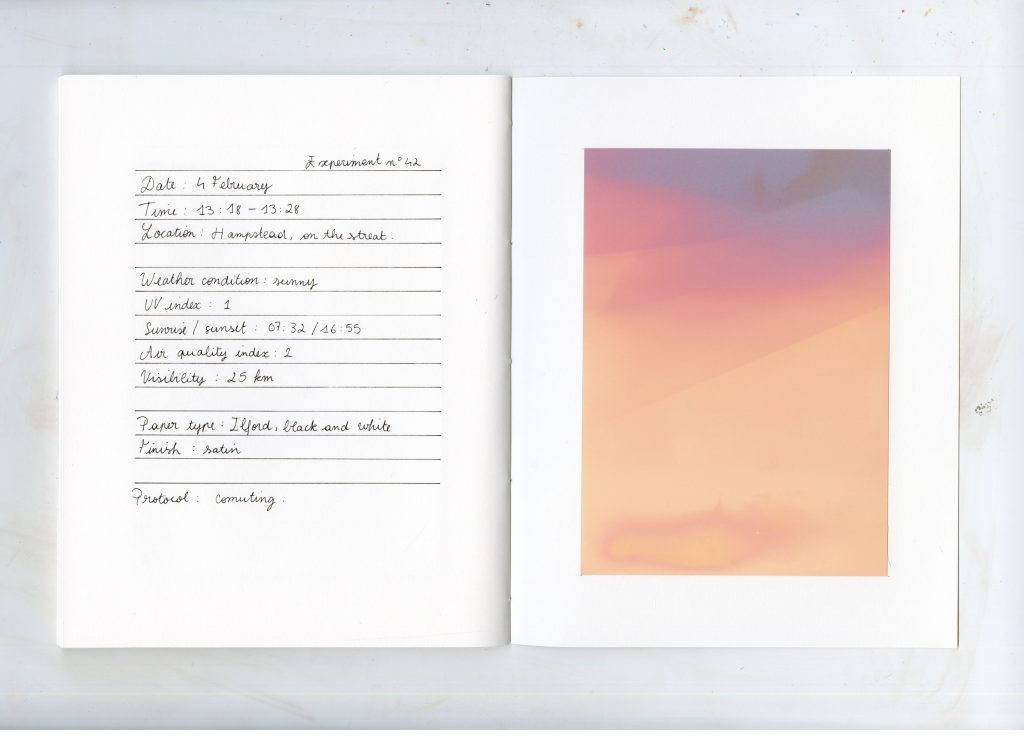 Experiment n° 42
Date : 4 February
Time : 13:18 - 13:28
Location : Hampstead, on the streat.
Weather condition : sunny
UV index : 1
Sunrise / sunset : 07:32 / 16:55
Air quality index : 2
Visibility : 25 km
Paper type : Ilford, black and white
Finish : satin
Protocol : comuting.